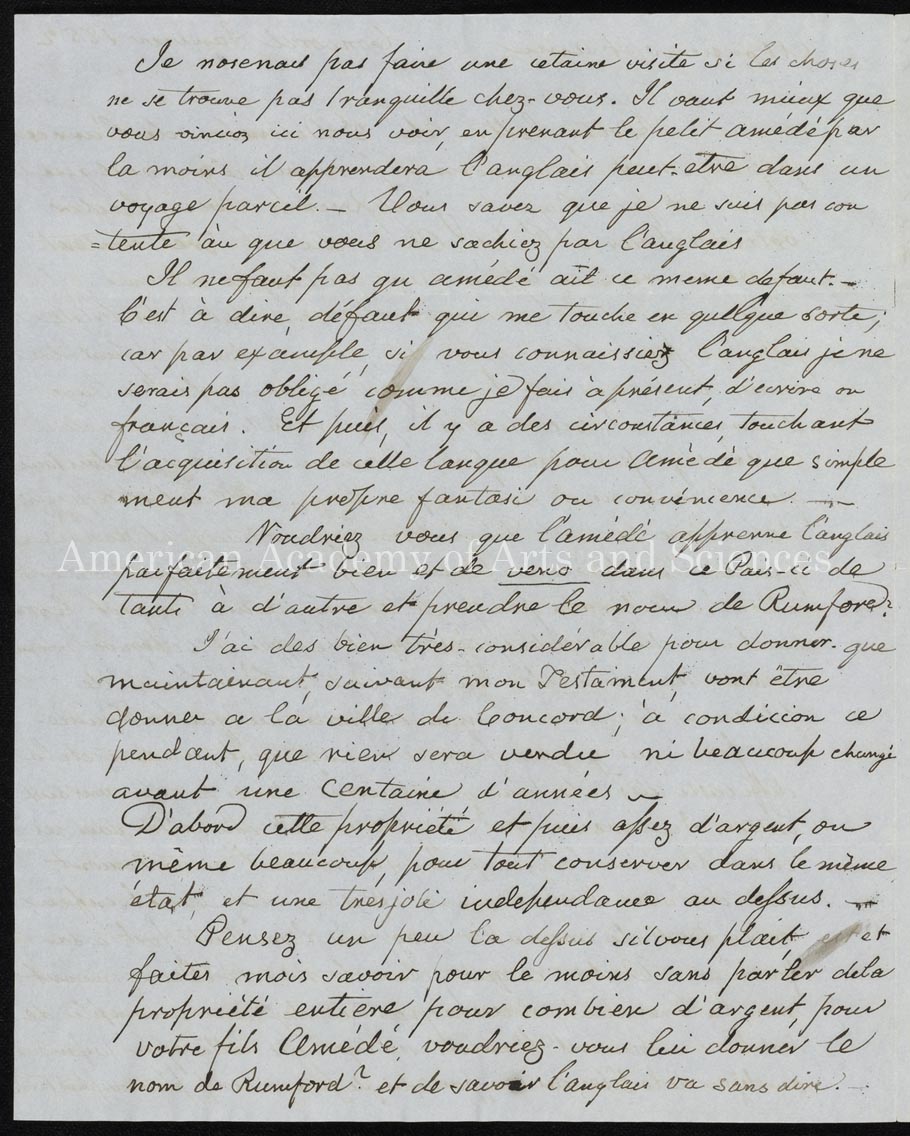 Je noserais pas faire une cetaine visite si les choses
ne se trouve pas tranquille chez-vous. Il vaut mieux que
vous veniez ici nous voir, en prenant le petit amédé par
la moins il apprendera l'anglais peut-etre dans un
voyage pareil. — Vous savez que je ne suis pas con
=tente àu que vous ne sachiez par l'anglais
Il ne faut pas qu amédé ait ce meme defaut. —
C'est à dire, défaut qui me touche en quelque sorte;
car par example, si vous connaissiez l'anglais je ne
serais pas obligé comme je fais à présent, d'ecrire en
français. Et puis, il y a des circonstances, touchant
l'acquisition de celle langue pour Amédé que simple
ment ma propre fantasi ou convénience. —
Voudriez vous que l'amédé apprenne l'anglais
American Academy of Arts and Sciences
parfaitement bien et de venir dans ce Pais-ci de
tants à d'autre et prendre le nom de Rumford?
J'ai des bien très-considérable pour donner. que
maintainant, suivant mon Testament, vont être
donner a la ville de Concord; à condiccion ce
pendant, que rien sera vendu ni beaucoup changé
avant une centaine d'années —
D'abord cette propriété et puis assez d'argent, ou
même beaucoup, pour tout conserver dans le même
état, et une tres joli independance au dessus. —
Pensez un peu la dessus silvous plait, et
faites mois savoir pour le moins sans parler dela
propriété entiere pour combien d'argent, pour
votre fils Amédé, voudriez-vous lui donner le
nom de Rumford? et de savoir l'anglais va sans dire. —